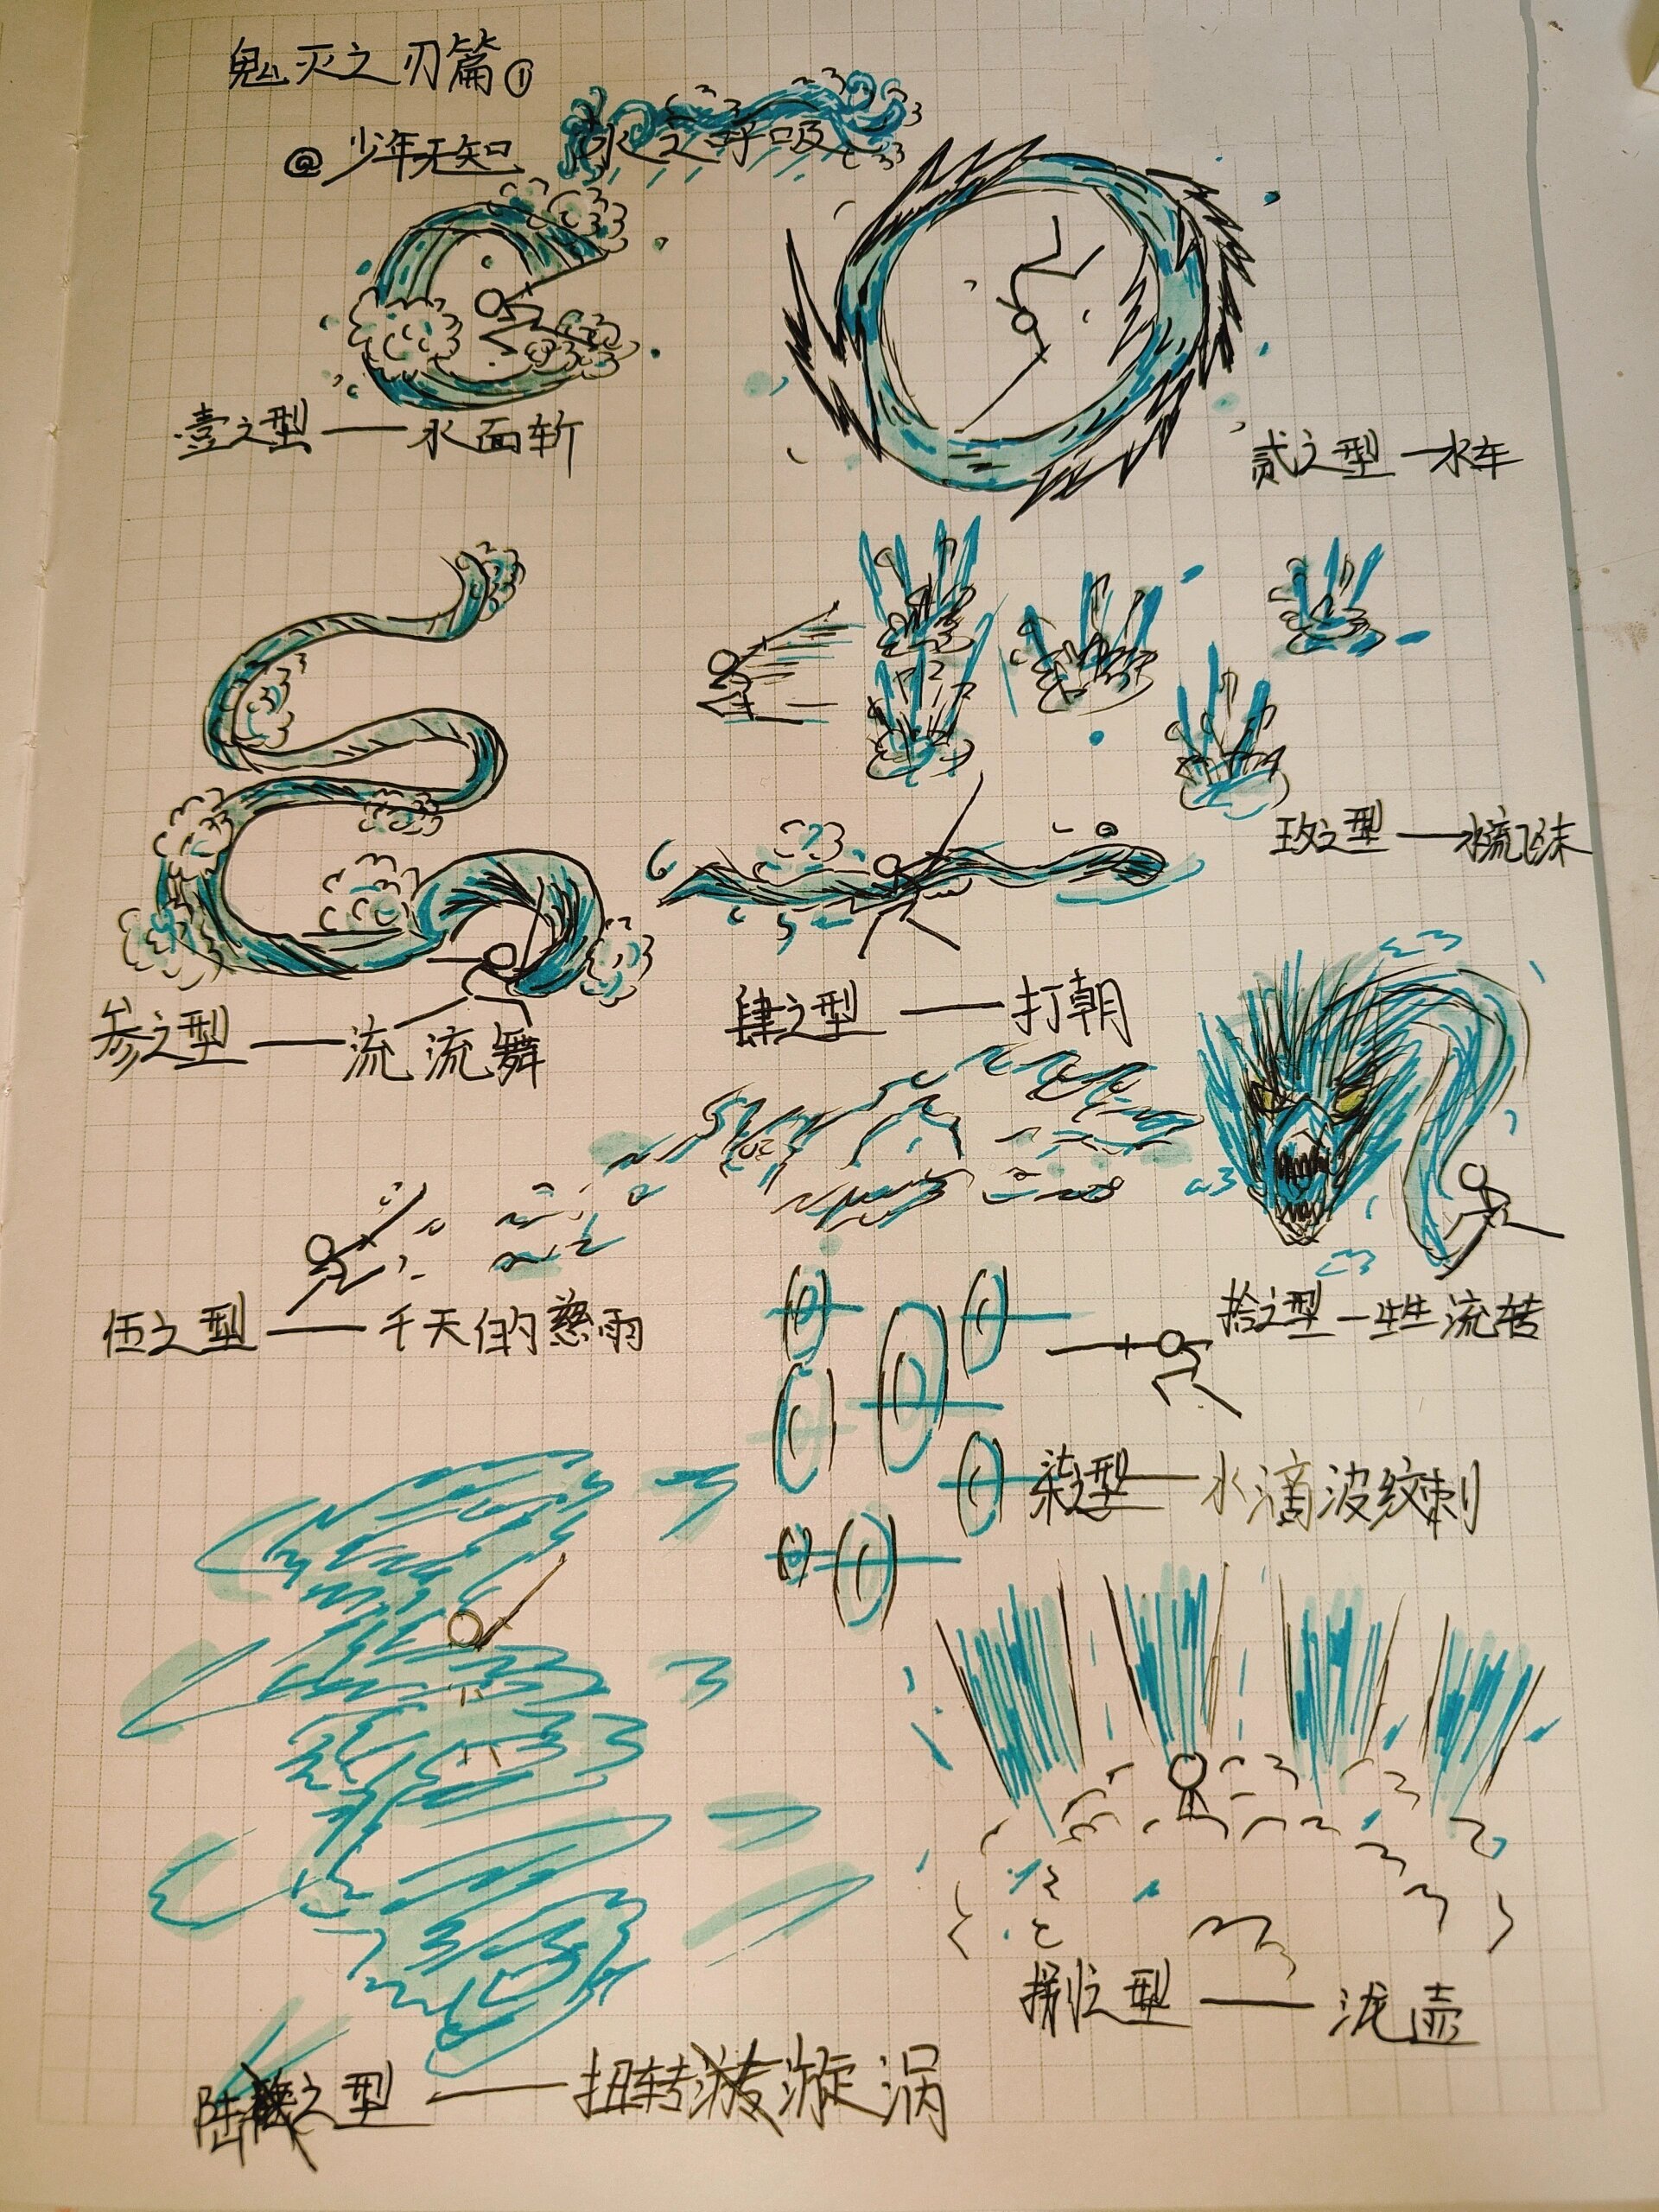 鬼灭之刃篇①
@少年无知
水之呼吸
壹之型一水面斩
贰之型一水车
玖之型一水流飞沫
参之型一流流舞
肆之型一打朝
伍之型一千天的慈雨
拾之型一生生流转
柒之型一水滴波纹刺
捌之型一泷壶
陆之型一扭转漩涡